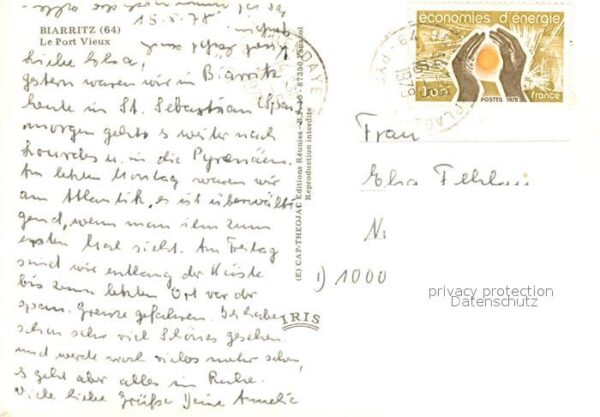 BIARRITZ (64)
Le Port Vieux
15.5.78
Liebe Elsa!
gestern waren wir in Biarritz
heute in St. Sebastian
morgen gehts weiter nach
Lourdes u. in die Pyrenäen.
Am letzten Montag waren wir
am Atlantik, es ist überwälti
gend, wenn man ihn zum
ersten Mal sieht. Am Freitag
sind wir entlang der Küste
bis zum letzten Ort vor der
span. Grenze gefahren. Ich habe
schon sehr viel Schönes gesehen
und werde noch vieles mehr sehen,
es geht aber alles in Ruhe.
Viele liebe Grüße Deine Annelie
(E) CAP-THEOJAC Editions Réunies - 87350 Panazol
Reproduction interdite
IRIS
économies d'énergie
POSTES 1978
france
Frau
Elsa
1) 1000
privacy protection
Datenschutz